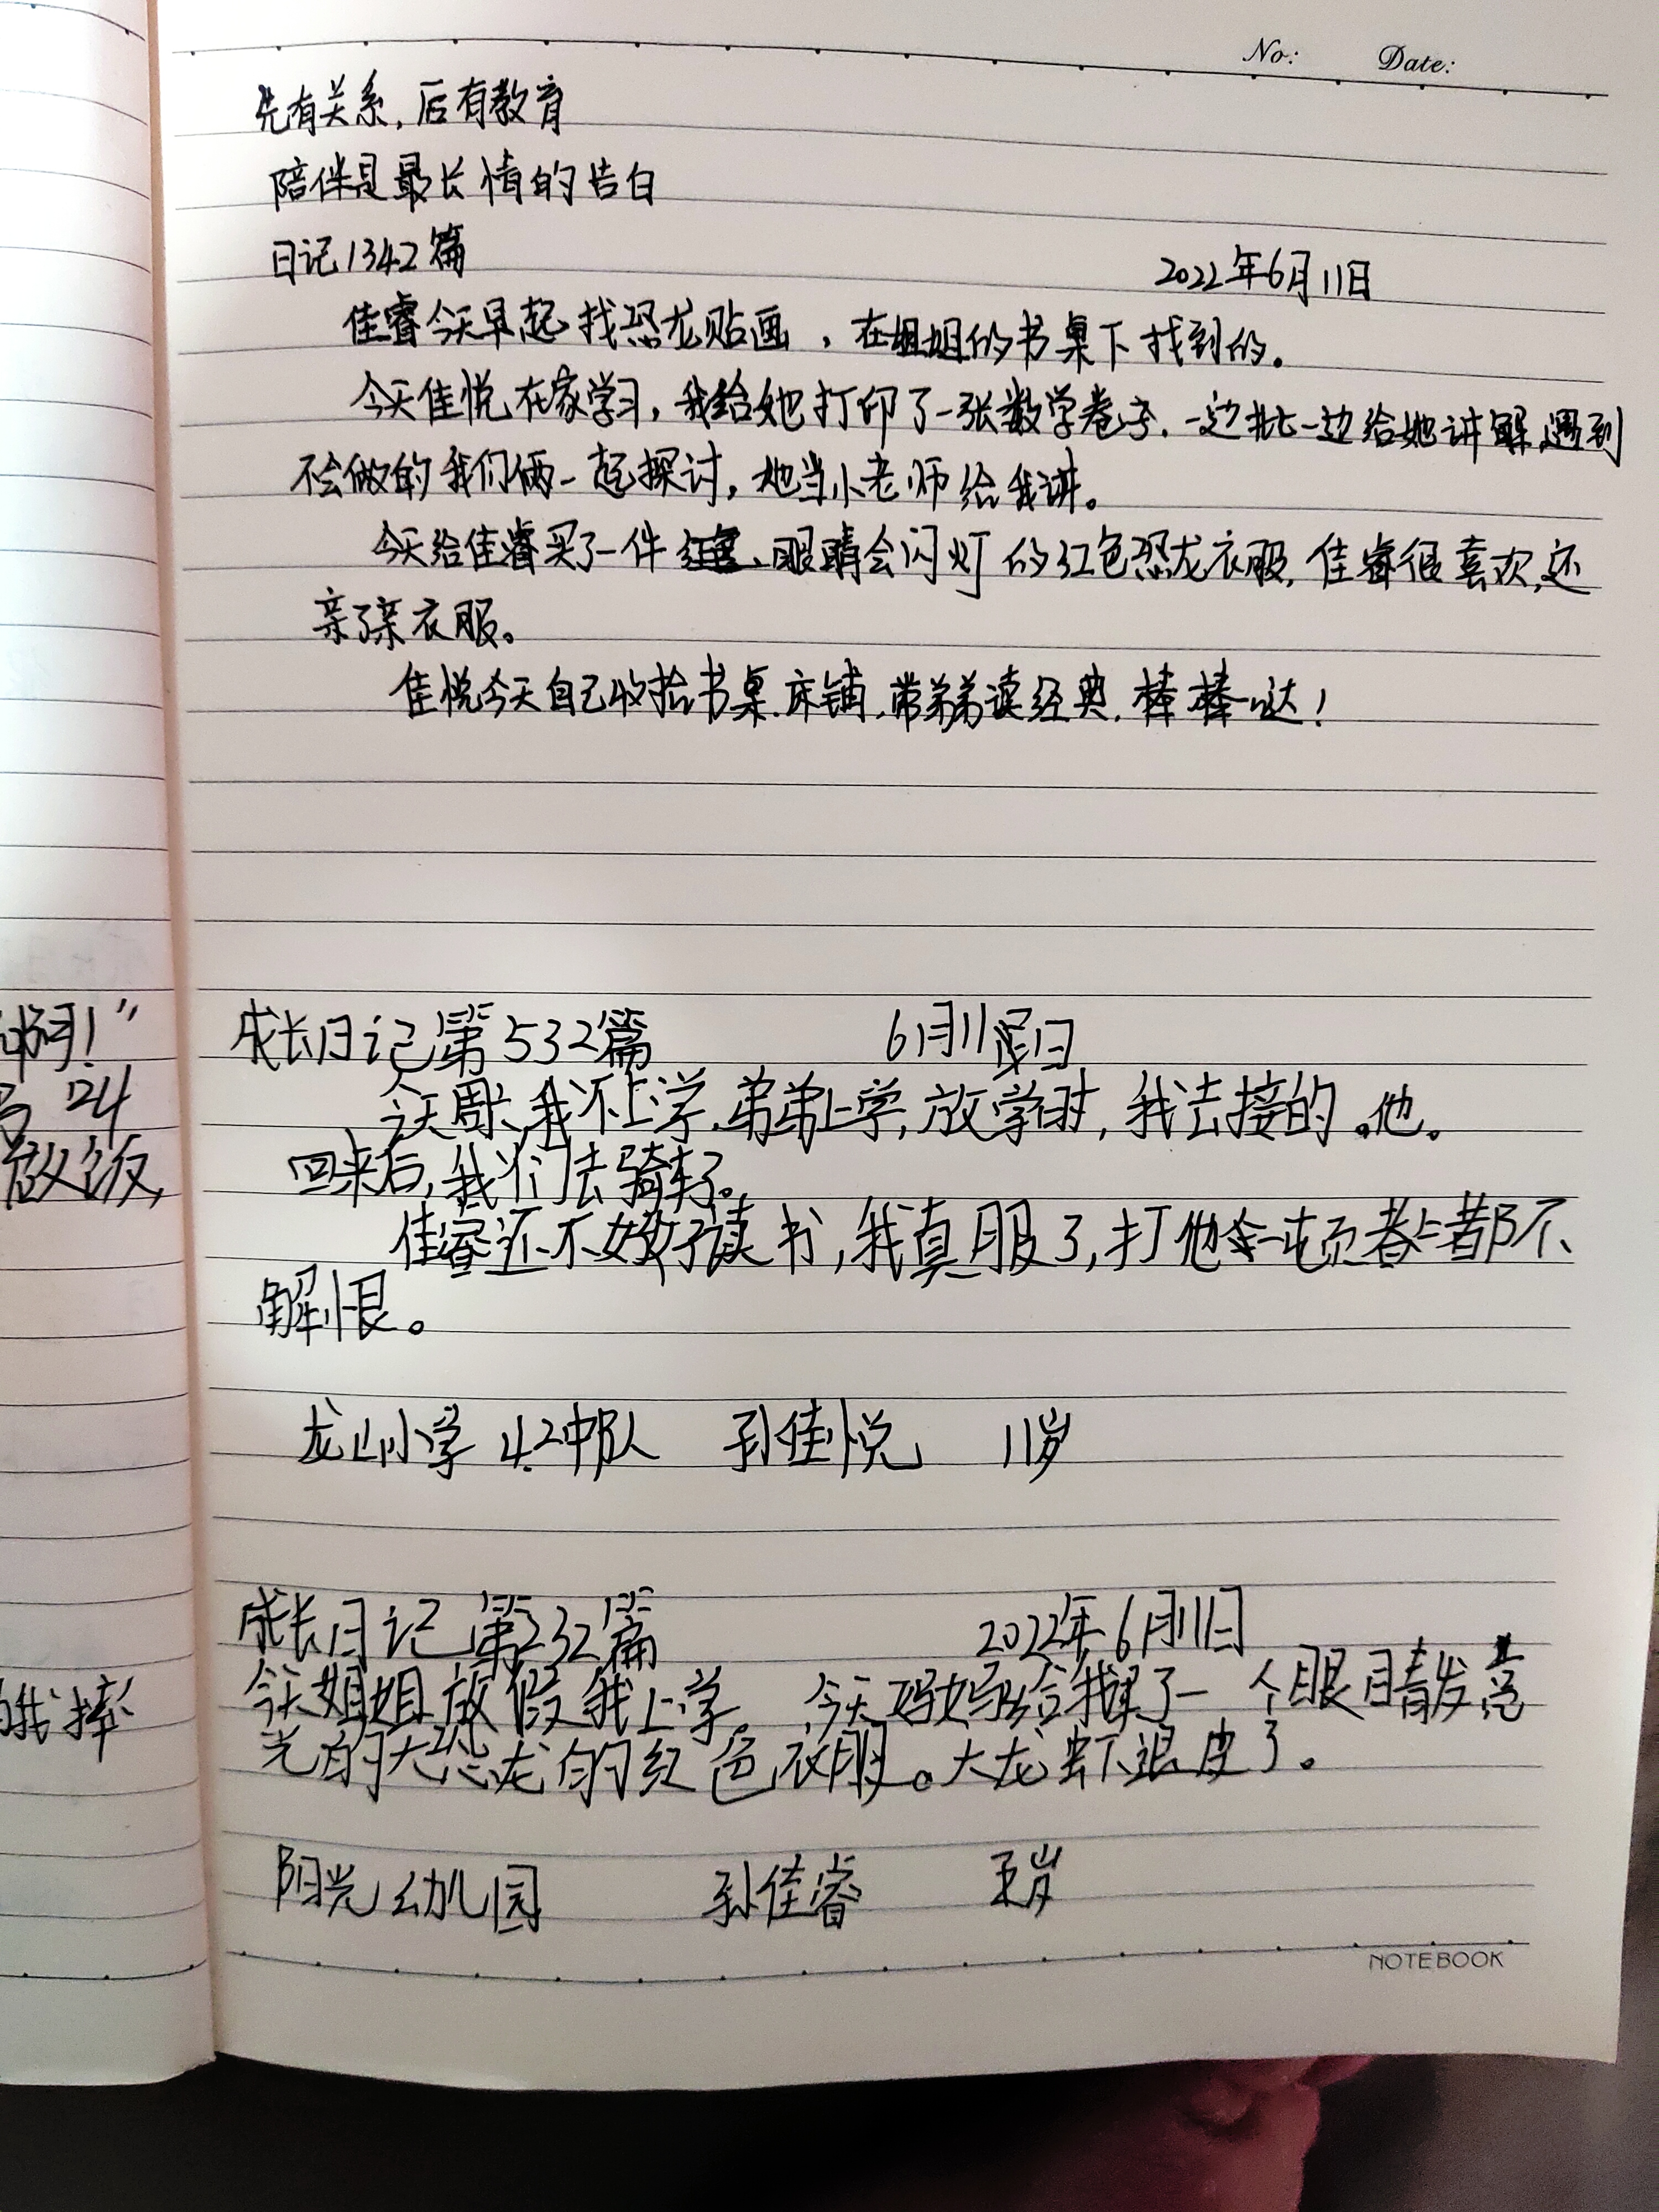 No: Date:
先有关系,后有教育
陪伴是最长情的告白
日记1342篇 2022年6月11日
佳睿今天早起找恐龙贴画,在姐姐的书桌下找到的。
今天佳悦在家学习,我给她打印了一张数学卷子.一边批一边给她讲解,遇到
不会做的我们俩一起探讨,她当小老师给我讲。
今天给佳睿买了一件 眼睛会闪灯的红色恐龙衣服,佳睿很喜欢,还
亲了亲衣服。
佳悦今天自己收拾书桌.床铺,带弟弟读经典,棒棒哒!
成长日记第532篇 6月11日
今天周六,我不上学,弟弟上学,放学时,我去接的他。
回来后,我们去骑车了。
佳睿还不好好读书,我真服了,打他一顿都不
解恨。
龙山小学 4.2中队 孙佳悦 11岁
成长日记第232篇 2022年6月11日
今天姐姐放假我上学。今天妈妈给我买了一个眼睛发
光的大恐龙的红色衣服。大龙虾退皮了。
阳光幼儿园 孙佳睿 岁
NOTEBOOK
!”
24
放饭,
我摔